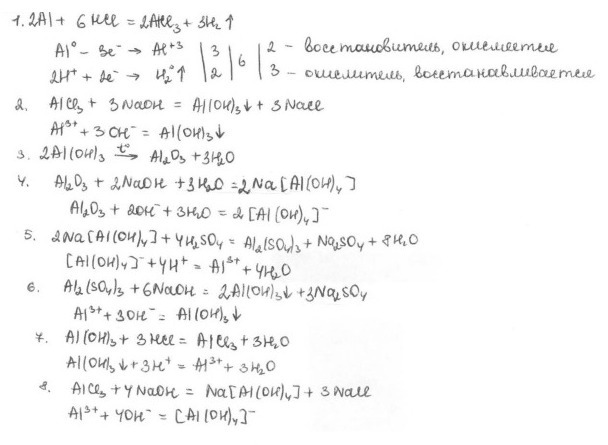 1. 2Al + 6HCl = 2AlCl₃ + 3H₂↑
Al⁰ – 3e⁻ → Al⁺³ | 3 | 6 | 2 – восстановитель, окисляется
2H⁺ + 2e⁻ → H₂⁰↑ | 2 | | 3 – окислитель, восстанавливается
2. AlCl₃ + 3NaOH = Al(OH)₃↓ + 3NaCl
Al³⁺ + 3OH⁻ = Al(OH)₃↓
3. 2Al(OH)₃ –t°→ Al₂O₃ + 3H₂O
4. Al₂O₃ + 2NaOH + 3H₂O = 2Na[Al(OH)₄]
Al₂O₃ + 2OH⁻ + 3H₂O = 2[Al(OH)₄]⁻
5. 2Na[Al(OH)₄] + 4H₂SO₄ = Al₂(SO₄)₃ + Na₂SO₄ + 8H₂O
[Al(OH)₄]⁻ + 4H⁺ = Al³⁺ + 4H₂O
6. Al₂(SO₄)₃ + 6NaOH = 2Al(OH)₃↓ + 3Na₂SO₄
Al³⁺ + 3OH⁻ = Al(OH)₃↓
7. Al(OH)₃ + 3HCl = AlCl₃ + 3H₂O
Al(OH)₃↓ + 3H⁺ = Al³⁺ + 3H₂O
8. AlCl₃ + 4NaOH = Na[Al(OH)₄] + 3NaCl
Al³⁺ + 4OH⁻ = [Al(OH)₄]⁻